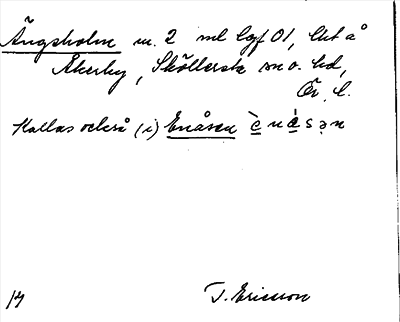 Ängsholm m. 2 ml lgf 01, lht å
Åkerby, Sköllersta sn o. hd,
Ör. l.
Kallas också (i) Enåsen è n å s ə n
T. Ericsson